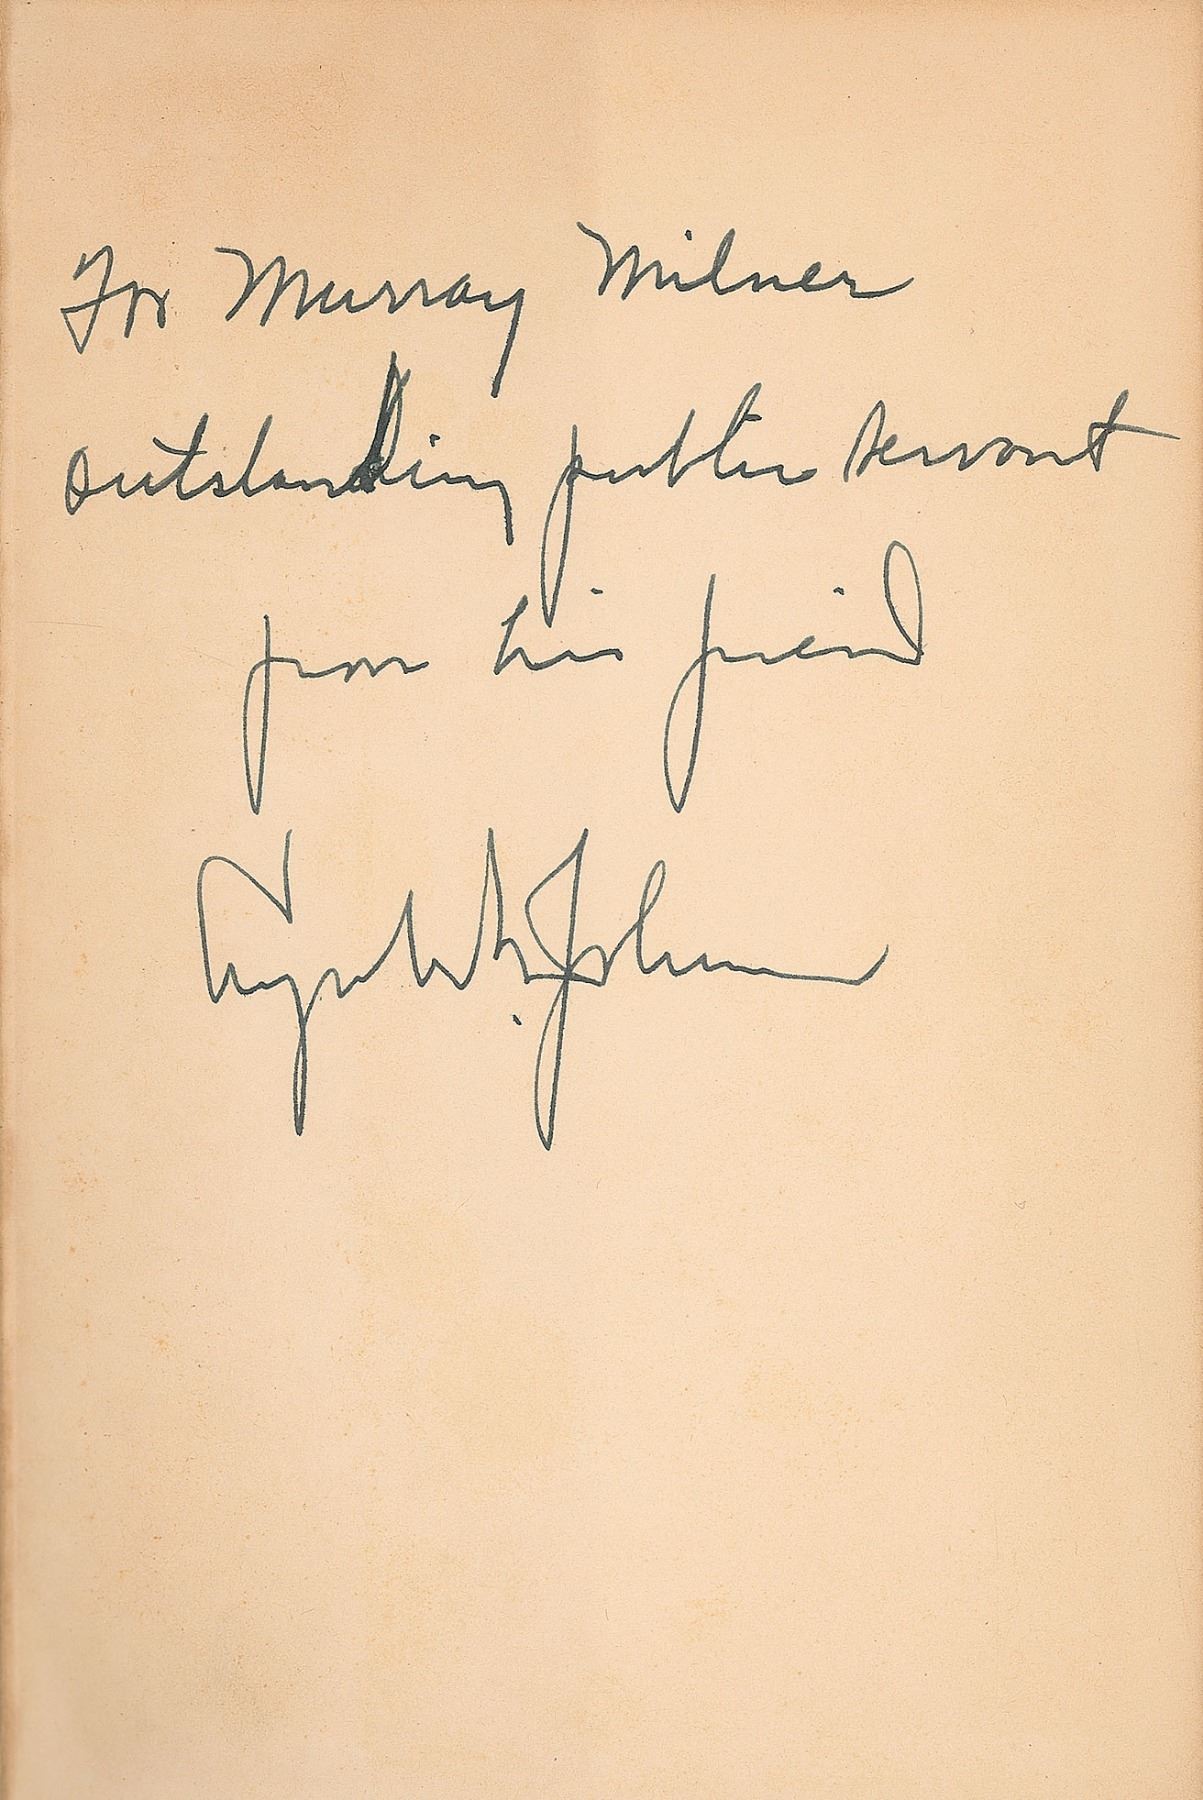 For Murray Milner
outstanding public servant
from his friend
Johnson